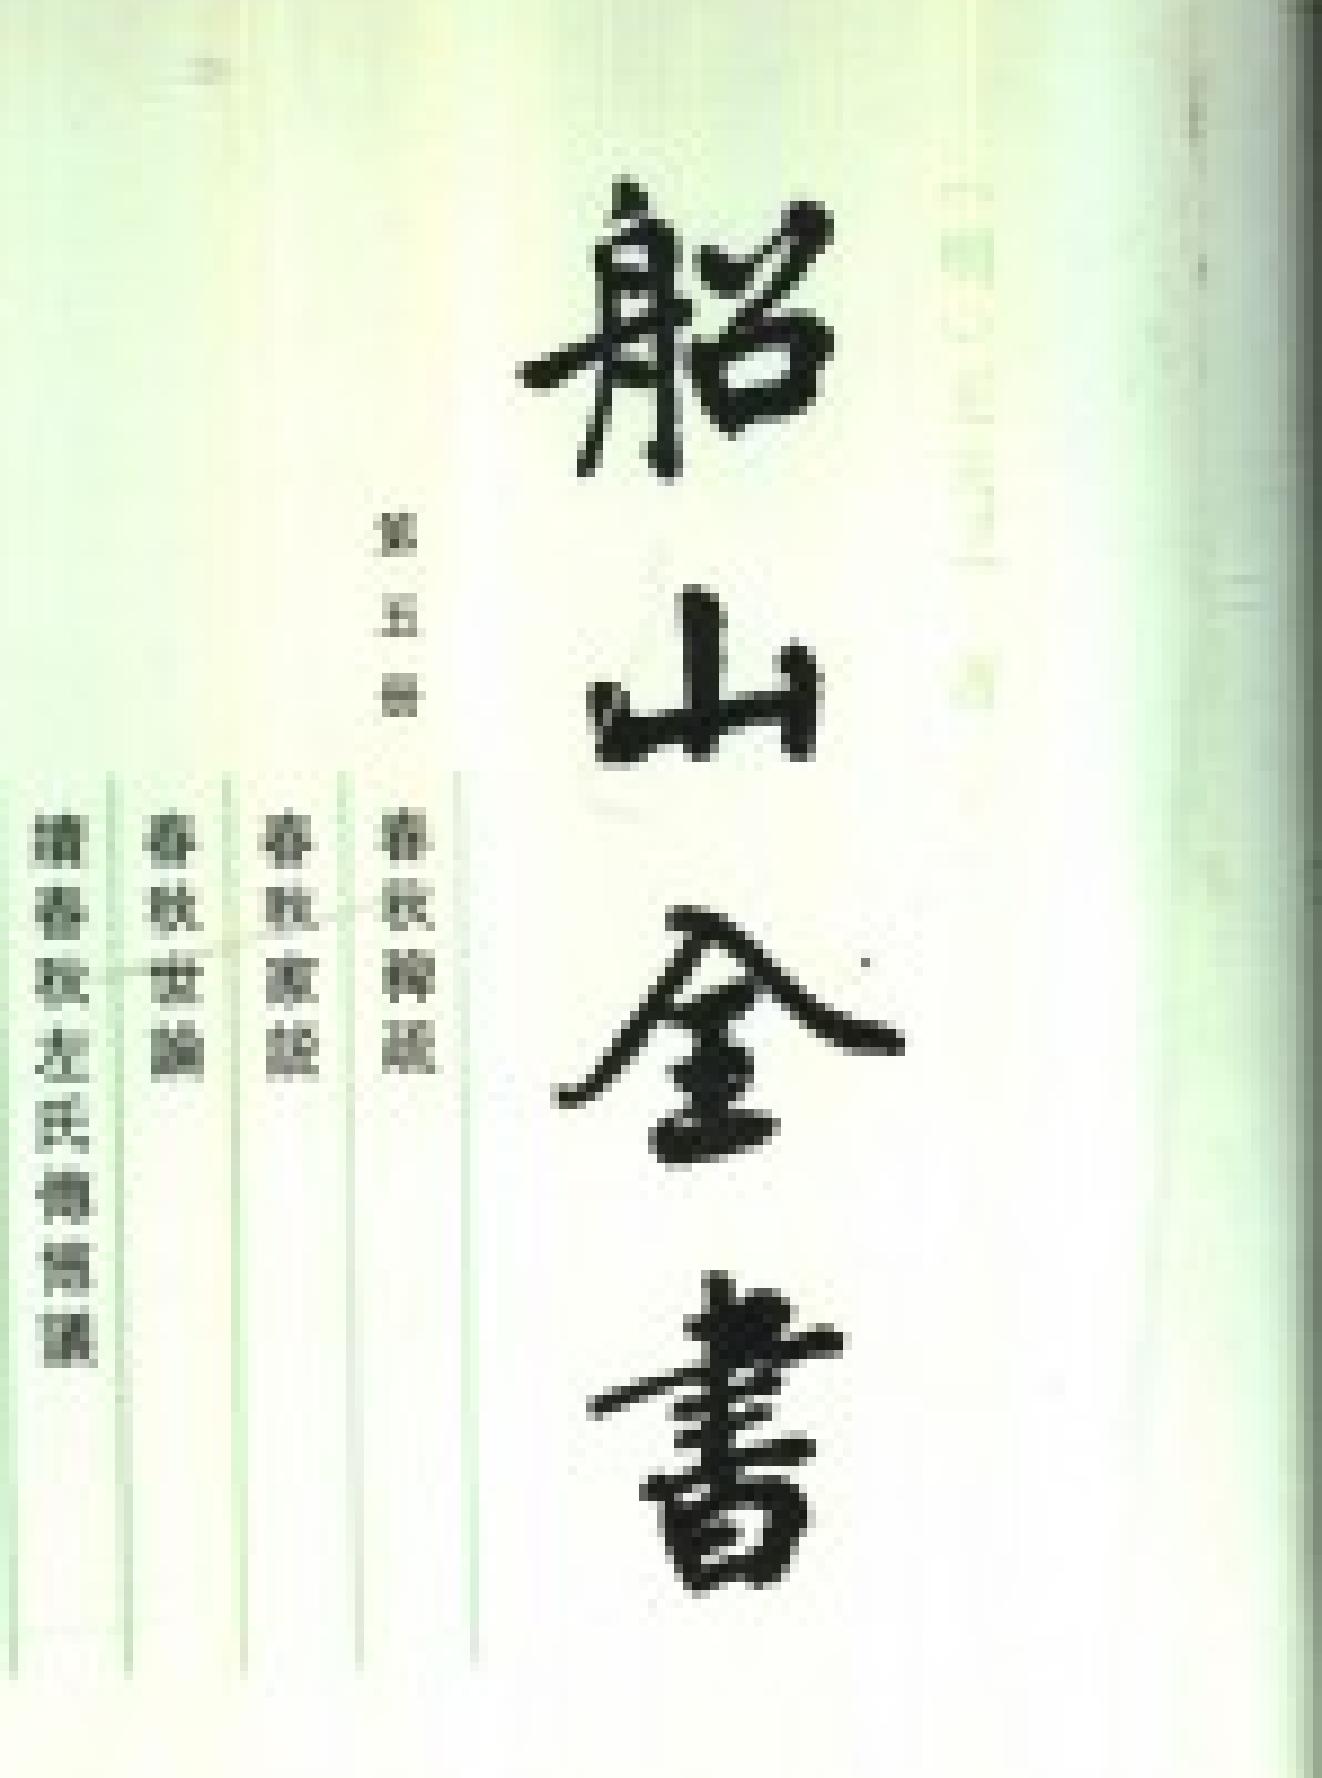 船山全書
第五冊
春秋稗疏
春秋家說
春秋世論
續春秋左氏傳博議